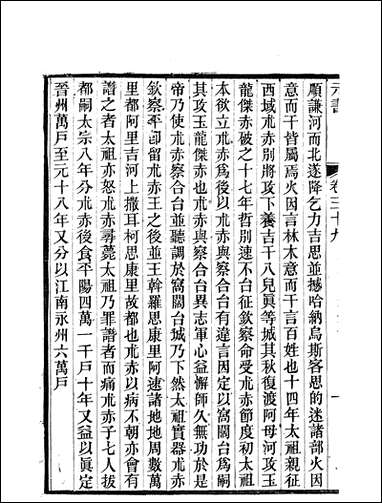 元書 卷三十九 一
順謙河而北遂降乞力吉思並撼哈納烏斯客思的迷諸部火因
意而干皆屬焉火因言林木意而干言百姓也十四年太祖親征
西域朮赤別將攻下養吉干八兒眞等城其秋復渡阿母河攻玉
龍傑赤破之十七年哲別速不台征欽察命受朮赤節度初太祖
本欲立朮赤爲後以朮赤與察合台有違言因定以窩闊台爲嗣
其攻玉龍傑赤也朮赤與察合台異志軍心益懈師久無功於是
帝乃使朮赤察合台並聽調於窩闊台城乃下然太祖實器朮赤
欽察平卽留朮赤王之後並王斡羅思康里阿速諸地地周數萬
里都阿里吉河上撒耳柯思康里故都也朮赤以病不朝亦會有
譖之者太祖亦怒朮赤尋薨太祖乃罪譖者而痛朮赤子七人拔
都嗣太宗八年分朮赤後食平陽四萬一千戸十年又益以眞定
晉州萬戸至元十八年又分以江南永州六萬戸